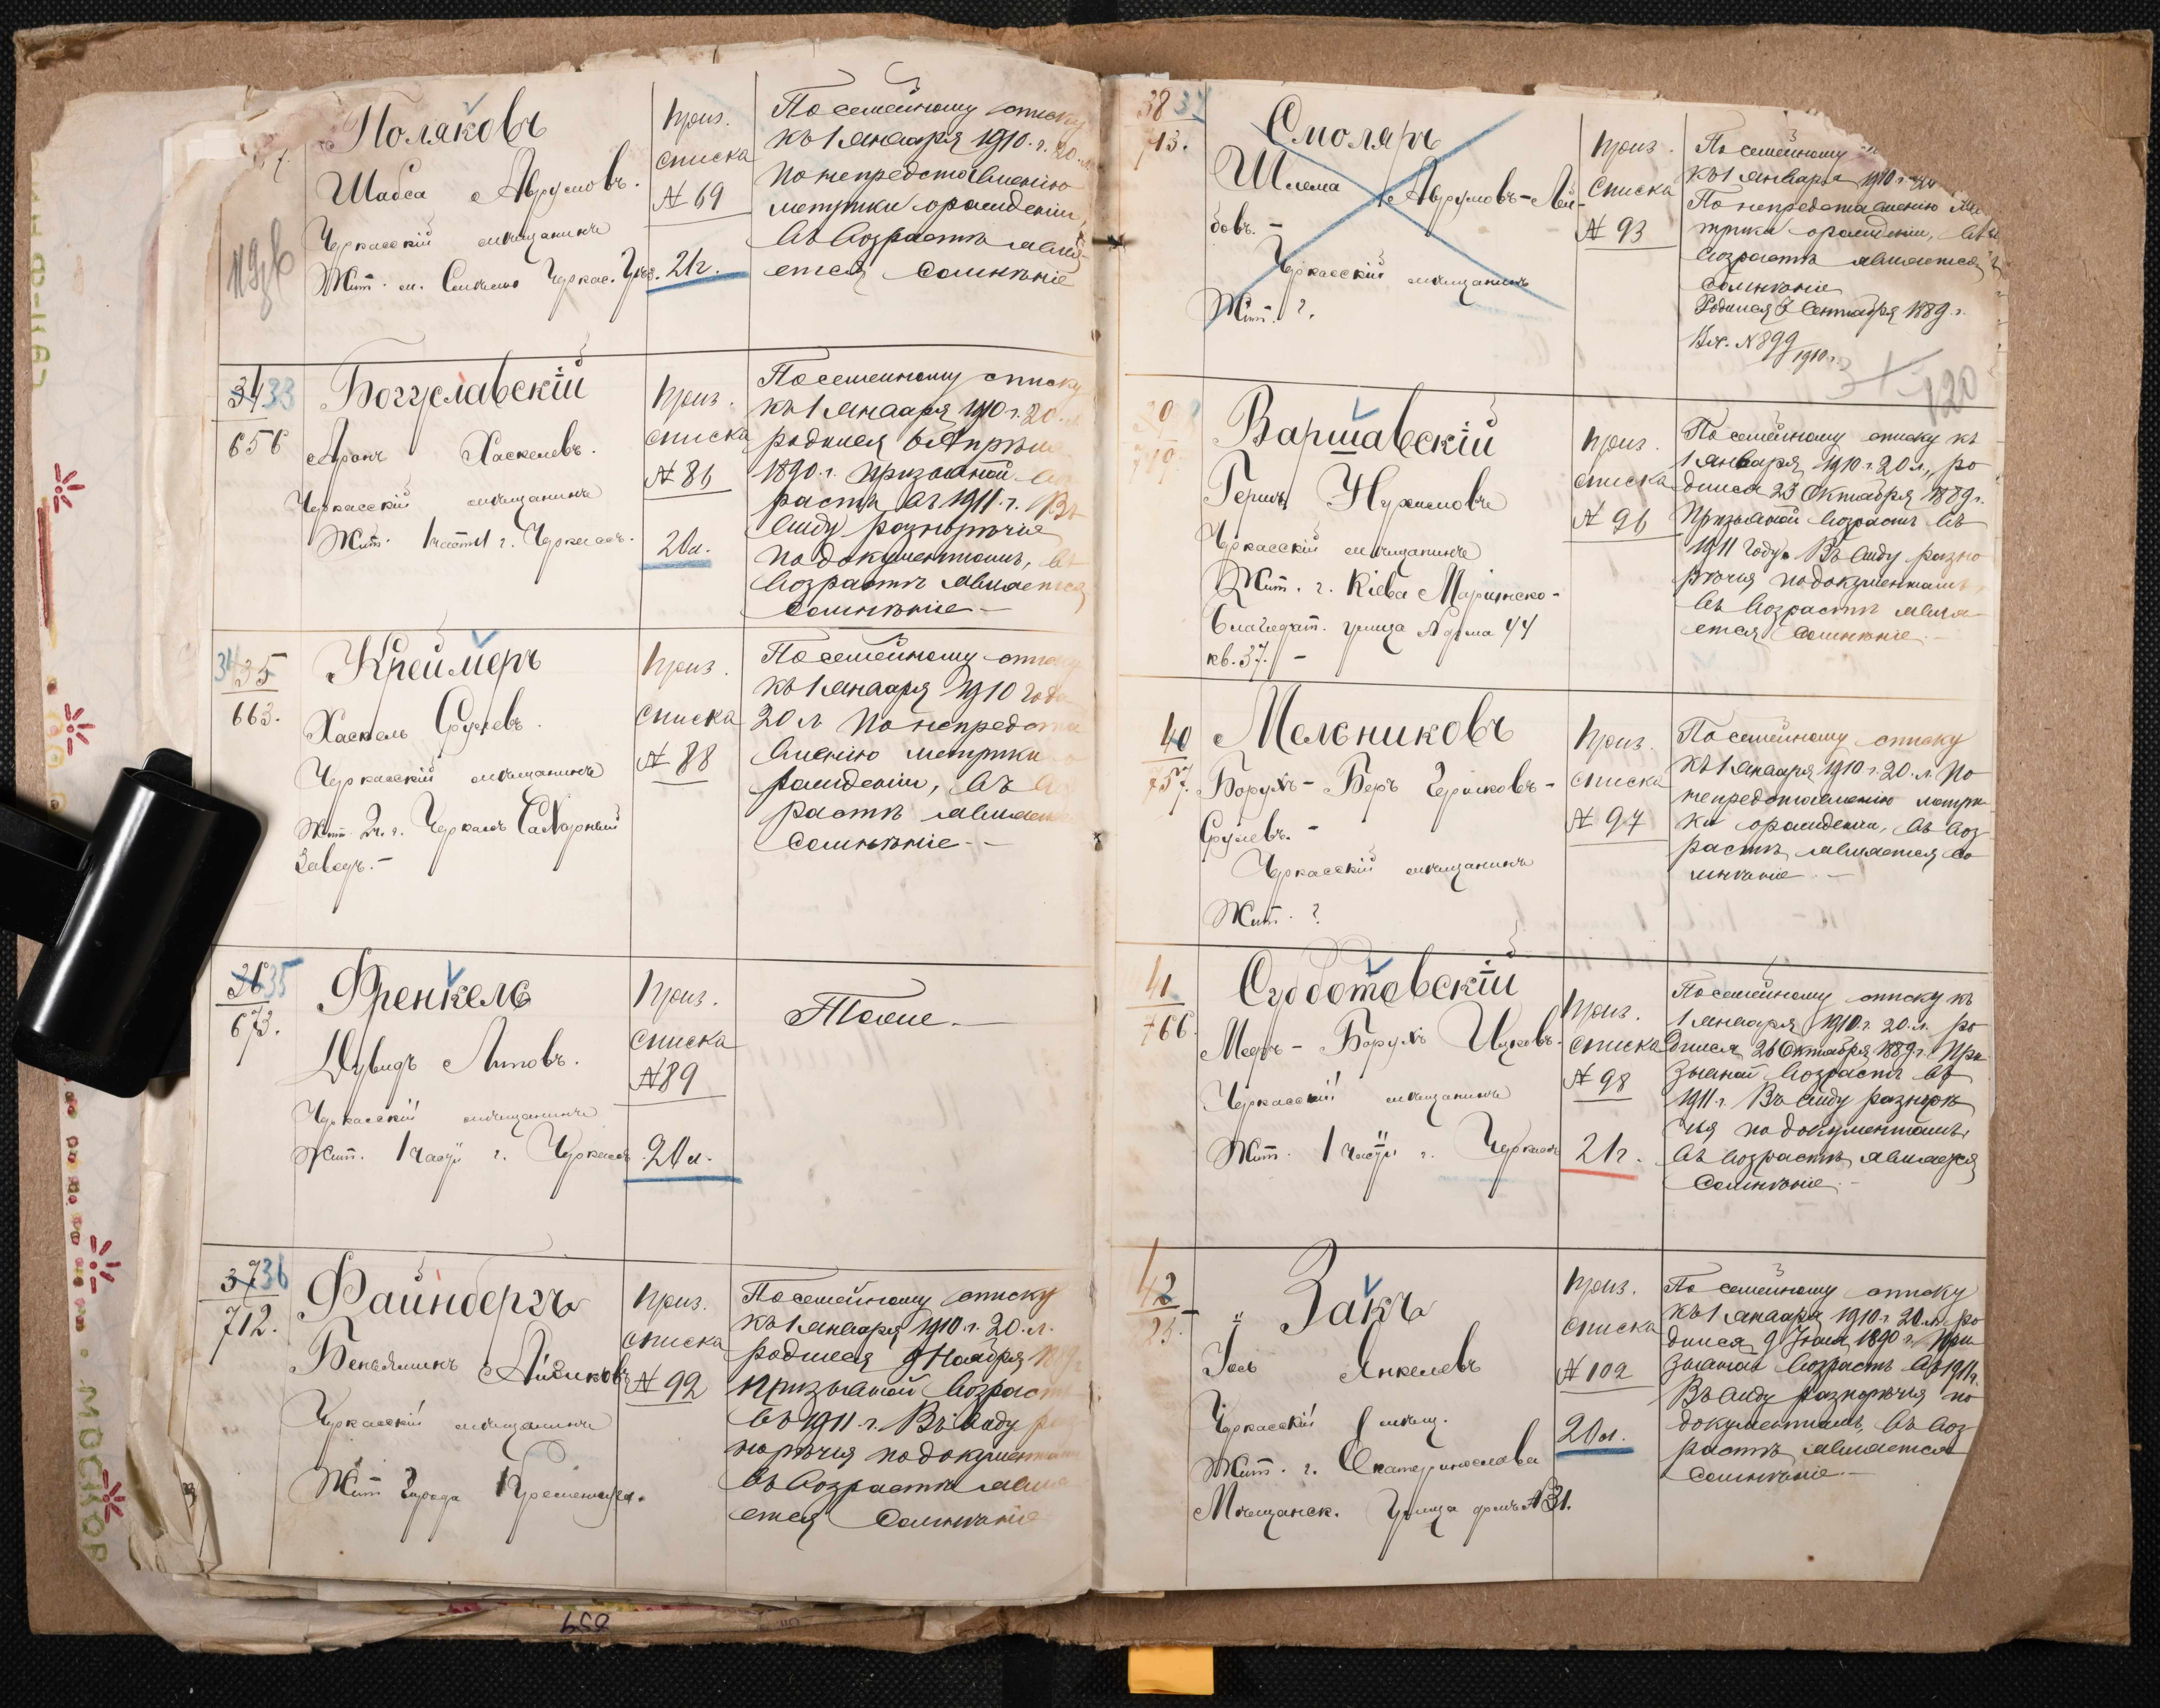 Поляковъ
Шабса Аврумовъ.
Черкасскій мѣщанинъ
Жит. м. Смѣла Черкас. Уѣз.
Приз.
списка
№ 69
21г.
По семейному списку
къ 1 Января 1910. г. 20.
По непредставленію
метрики о рожденіи,
въ возрастѣ явля-
ется сомнѣніе
34 33
656
Богуславскій
Аронъ Хаскелевъ.
Черкасскій мѣщанинъ
Жит. 1 части г. Черкассъ.
Приз.
списка
№ 86
20л.
По семейному списку
къ 1 Января 1910 г. 20.
родился 6 Апрѣля
1890. г. Призывной
растъ въ 1911. г. Въ
виду разнорѣчія
по документамъ,
возрастѣ является
сомнѣніе
34 35
663.
Хаскель Срулевъ.
Черкасскій мѣщанинъ
Жит. 2 ч. г. Черкассъ Сахарный
Заводъ.
Приз.
списка
№ 88
По семейному списку
къ 1 Января 1910 года
20 л По непредста
вленію метрики о
рожденіи, въ
растѣ является
сомнѣніе
36 35
673.
Френкель
Дувидъ
Черкасскій мѣщанинъ
Жит. 1 части г. Черкассъ
Приз.
списка
№ 89
20л.
Тоже.
37 36
712.
Файнбергъ
Беньяминъ
Черкасскій мѣщанинъ
Жит города Кременчуга.
Приз.
списка
№ 92
По семейному списку
къ 1 Января 1910. г. 20. л.
родился 9 Ноября
Призывной возрастъ
въ 1911 г. Въ виду
норѣчія по документамъ
въ возрастѣ явля
ется сомнѣніе
38 37
713.
Смоляръ
Шлема Аврумовъ-Лей-
бовъ.
Черкасскій мѣщанинъ
Жит. ?
Приз.
списка
№ 93
По семейному
къ 1 Января 1910 г.
По непредставленію ме
трики о рожденіи, въ
возрастѣ является
сомнѣніе
Родился 3 Сентября 1889. г.
Вх. № 899
1910 г.
120
Варшавскій
Гершъ Нухимовъ
Черкасскій мѣщанинъ
Жит. г. Кіева Маріинско-
Благовѣщ. улица № дома 44
кв. 37.
Приз.
списка
№ 96
По семейному списку къ
1 Января 1910. г. 20 л., ро
дился 23 Октября 1889 г.
Призывной возрастъ въ
1911 году. Въ виду разно
рѣчія по документамъ,
въ возрастѣ явля
ется сомнѣніе.
40
757.
Мельниковъ
Борухъ-Беръ Гершковъ-
Срулевъ.
Черкасскій мѣщанинъ
Жит. ?
Приз.
списка
№ 97
По семейному списку
къ 1 Января 1910. г. 20. л. По
непредставленію метри
ки о рожденіи, въ воз-
растѣ является со
мнѣніе.
41
766.
Суботовскій
Мееръ-Борухъ Ицковъ.
Черкасскій мѣщанинъ
Жит. 1 части г. Черкассъ
Приз.
списка
№ 98
21г.
По семейному списку къ
1 Января 1910. г. 20. л. ро
дился 26 Октября 1889 г. При
зывной возрастъ въ
1911. г. Въ виду разнорѣ
чія по документамъ,
въ возрастѣ является
сомнѣніе.
42
Закъ
Янкелевъ
Черкасскій мѣщ.
Жит. г. Екатеринослава
Мѣщанск. Улица домъ № 31.
Приз.
списка
№ 102
20л.
По семейному списку
къ 1 Января 1910 г. 20 л. ро
дился 9 1890 г. При
зывной возрастъ въ 1911 г.
Въ виду разнорѣчія по
документамъ, въ воз
растѣ является
сомнѣніе.